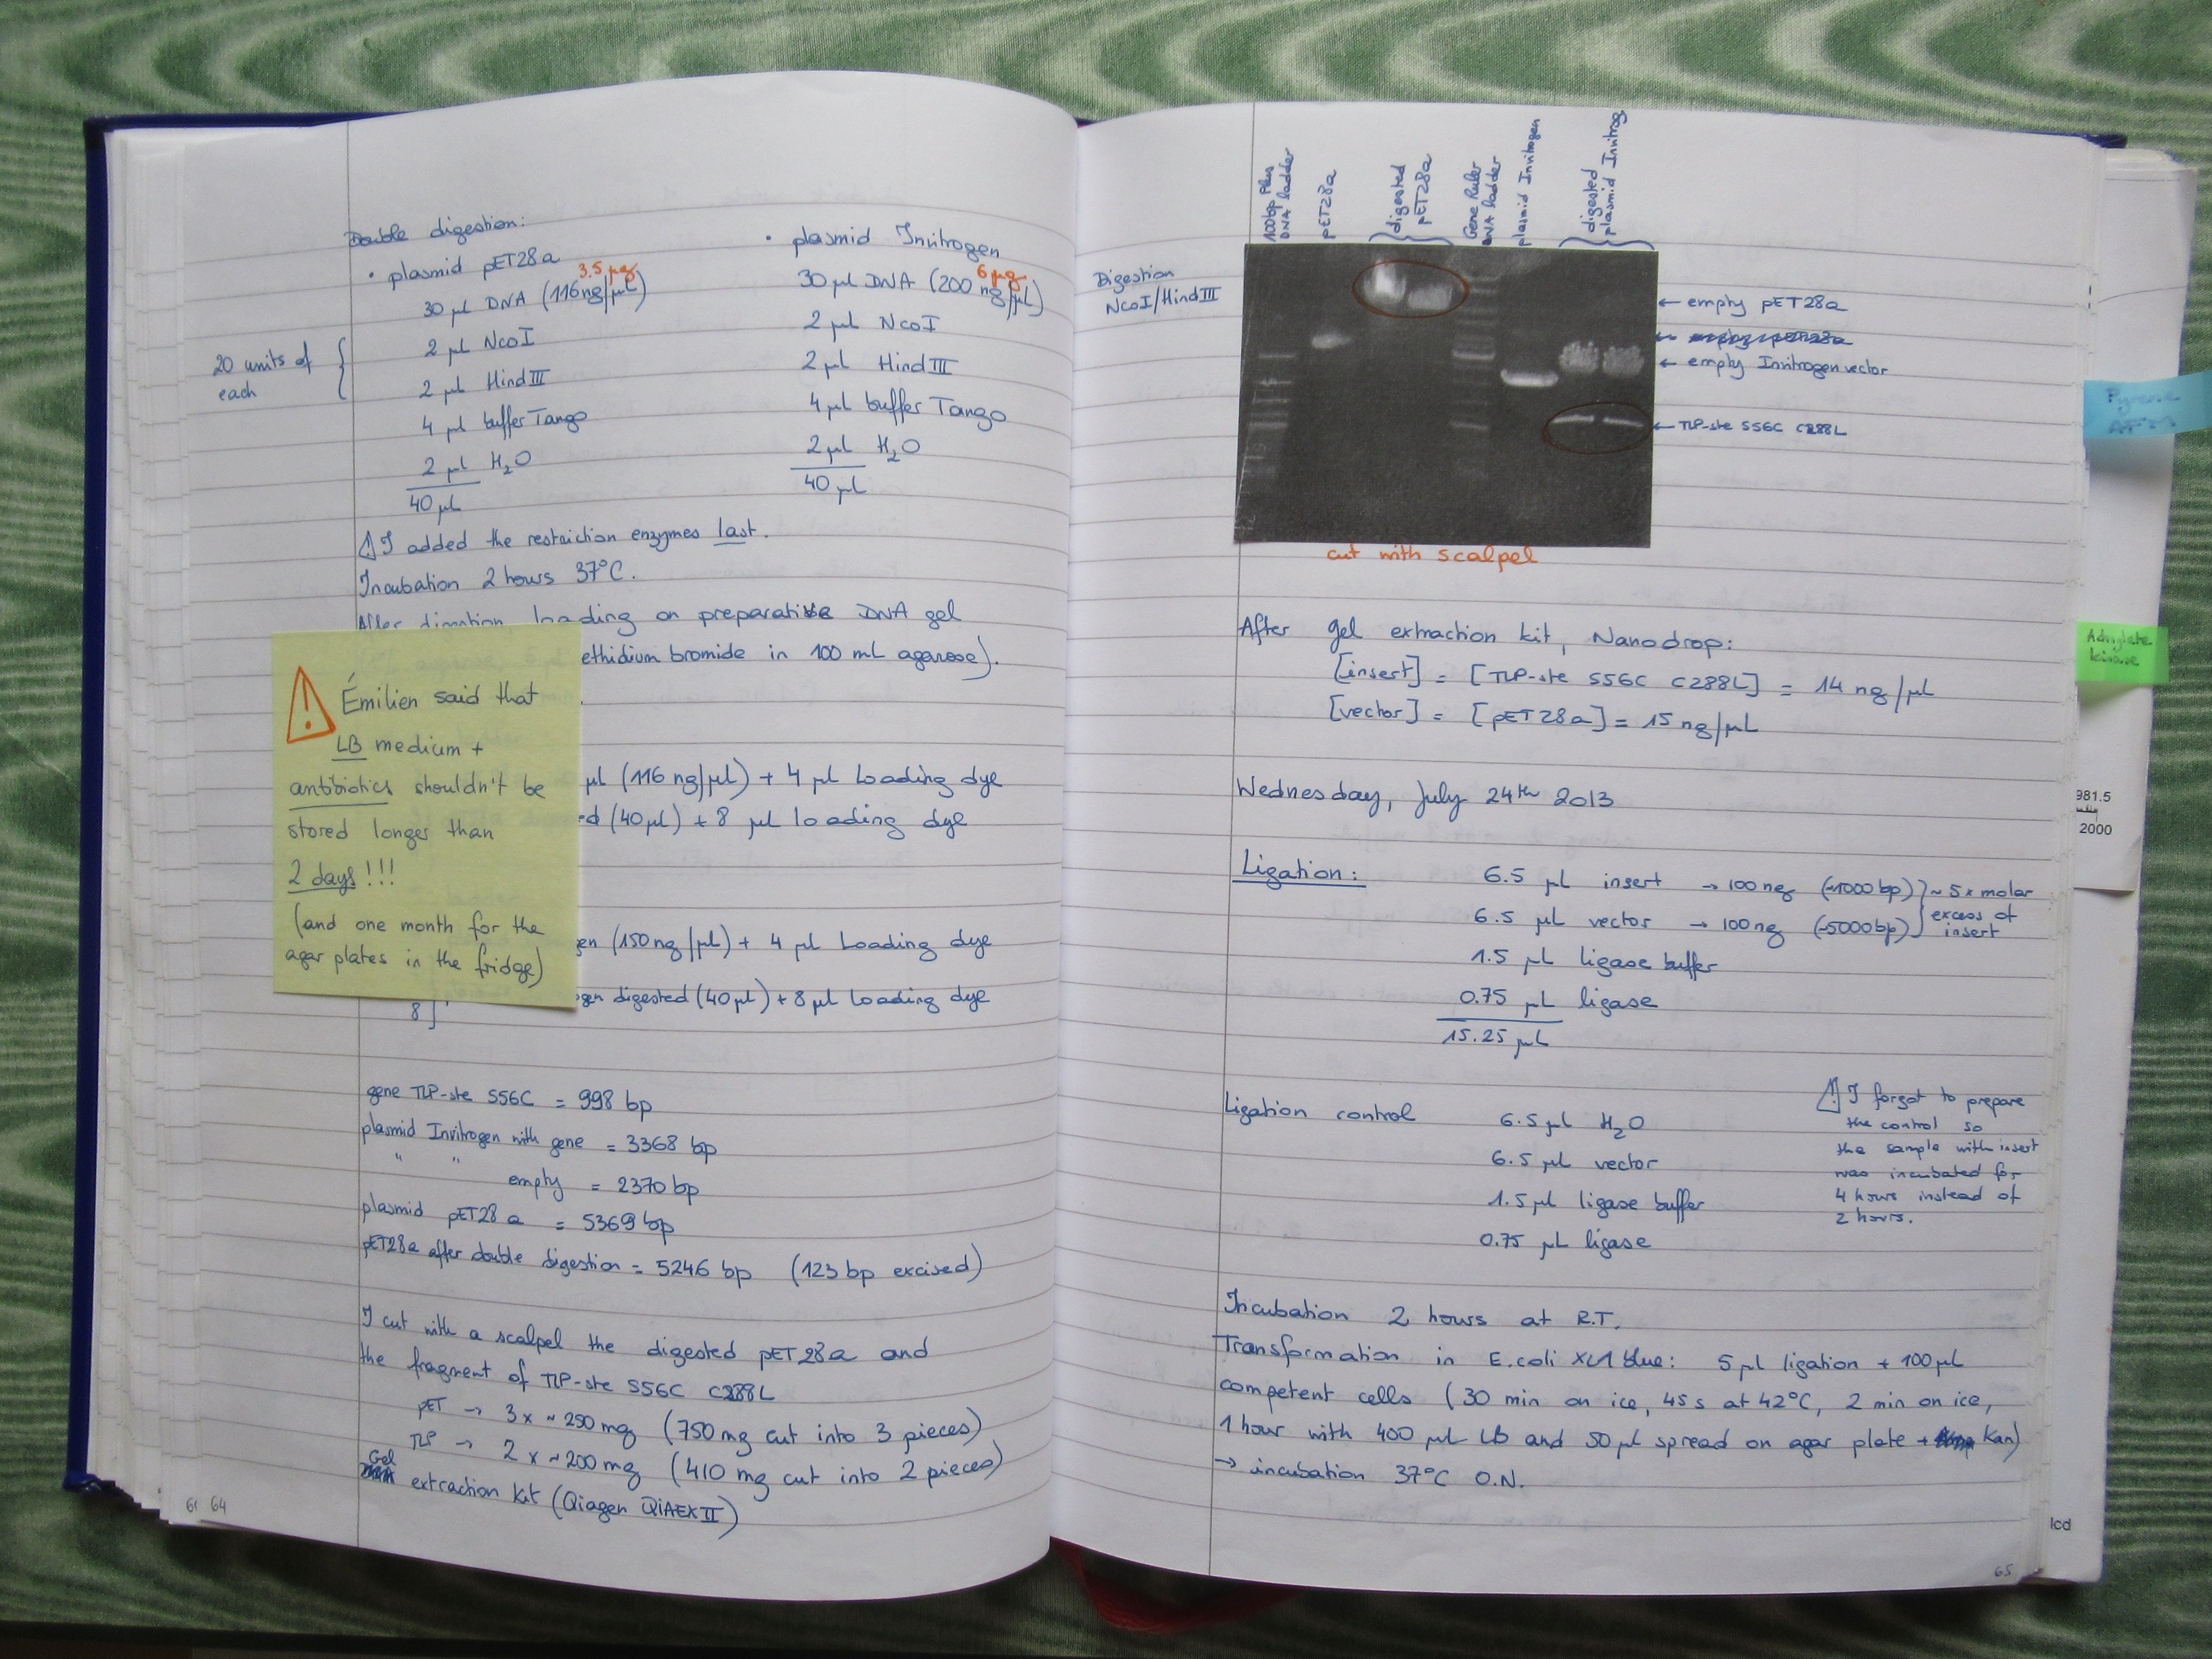 Double digestion:
• plasmid pET28a
3.5 µg
30 µl DNA (116 ng/µl)
2 µl NcoI
2 µl HindIII
20 units of
each
4 µl buffer Tango
2 µl H2O
40 µl
• plasmid Invitrogen
6 µg
30 µl DNA (200 ng/µl)
2 µl NcoI
2 µl HindIII
4 µl buffer Tango
2 µl H2O
40 µl
⚠ I added the restriction enzymes last.
Incubation 2 hours 37°C.
After digestion loading on preparative DNA gel
ethidium bromide in 100 mL agarose).
µl (116 ng/µl) + 4 µl loading dye
(40 µl) + 8 µl loading dye
(150 ng/µl) + 4 µl loading dye
digested (40 µl) + 8 µl loading dye
8
⚠ Émilien said that
LB medium +
antibiotics shouldn't be
stored longer than
2 days!!!
(and one month for the
agar plates in the fridge)
gene TLP-ste S56C = 998 bp
plasmid Invitrogen with gene = 3368 bp
" " empty = 2370 bp
plasmid pET28a = 5369 bp
pET28a after double digestion = 5246 bp (123 bp excised)
I cut with a scalpel the digested pET28a and
the fragment of TLP-ste S56C C288L
pET → 3 x ~250 mg (750 mg cut into 3 pieces)
TLP → 2 x ~200 mg (410 mg cut into 2 pieces)
Gel
extraction kit (Qiagen QIAEX II)
61 64
100bp Plus
DNA ladder
pET28a
digested
pET28a
Gene Ruler
DNA ladder
plasmid Invitrogen
digested
plasmid Invitrog
Digestion
NcoI/HindIII
← empty pET28a
← empty Invitrogen vector
← TLP-ste S56C C288L
cut with scalpel
After gel extraction kit, Nanodrop:
[insert] = [TLP-ste S56C C288L] = 14 ng/µl
[vector] = [pET28a] = 15 ng/µl
Wednesday, July 24th 2013
Ligation:
6.5 µl insert → 100 ng (~1000bp)
6.5 µl vector → 100 ng (~5000bp)
~ 5x molar
excess of
insert
1.5 µl ligase buffer
0.75 µl ligase
15.25 µl
Ligation control
6.5 µl H2O
6.5 µl vector
1.5 µl ligase buffer
0.75 µl ligase
⚠ I forgot to prepare
the control so
the sample with insert
was incubated for
4 hours instead of
2 hours.
Incubation 2 hours at R.T.
Transformation in E.coli XL1 blue: 5 µl ligation + 100 µl
competent cells (30 min on ice, 45 s at 42°C, 2 min on ice,
1 hour with 400 µL LB and 50 µl spread on agar plate + Kan)
→ incubation 37°C O.N.
65
Adenylate
kinase
981.5
2000
lcd